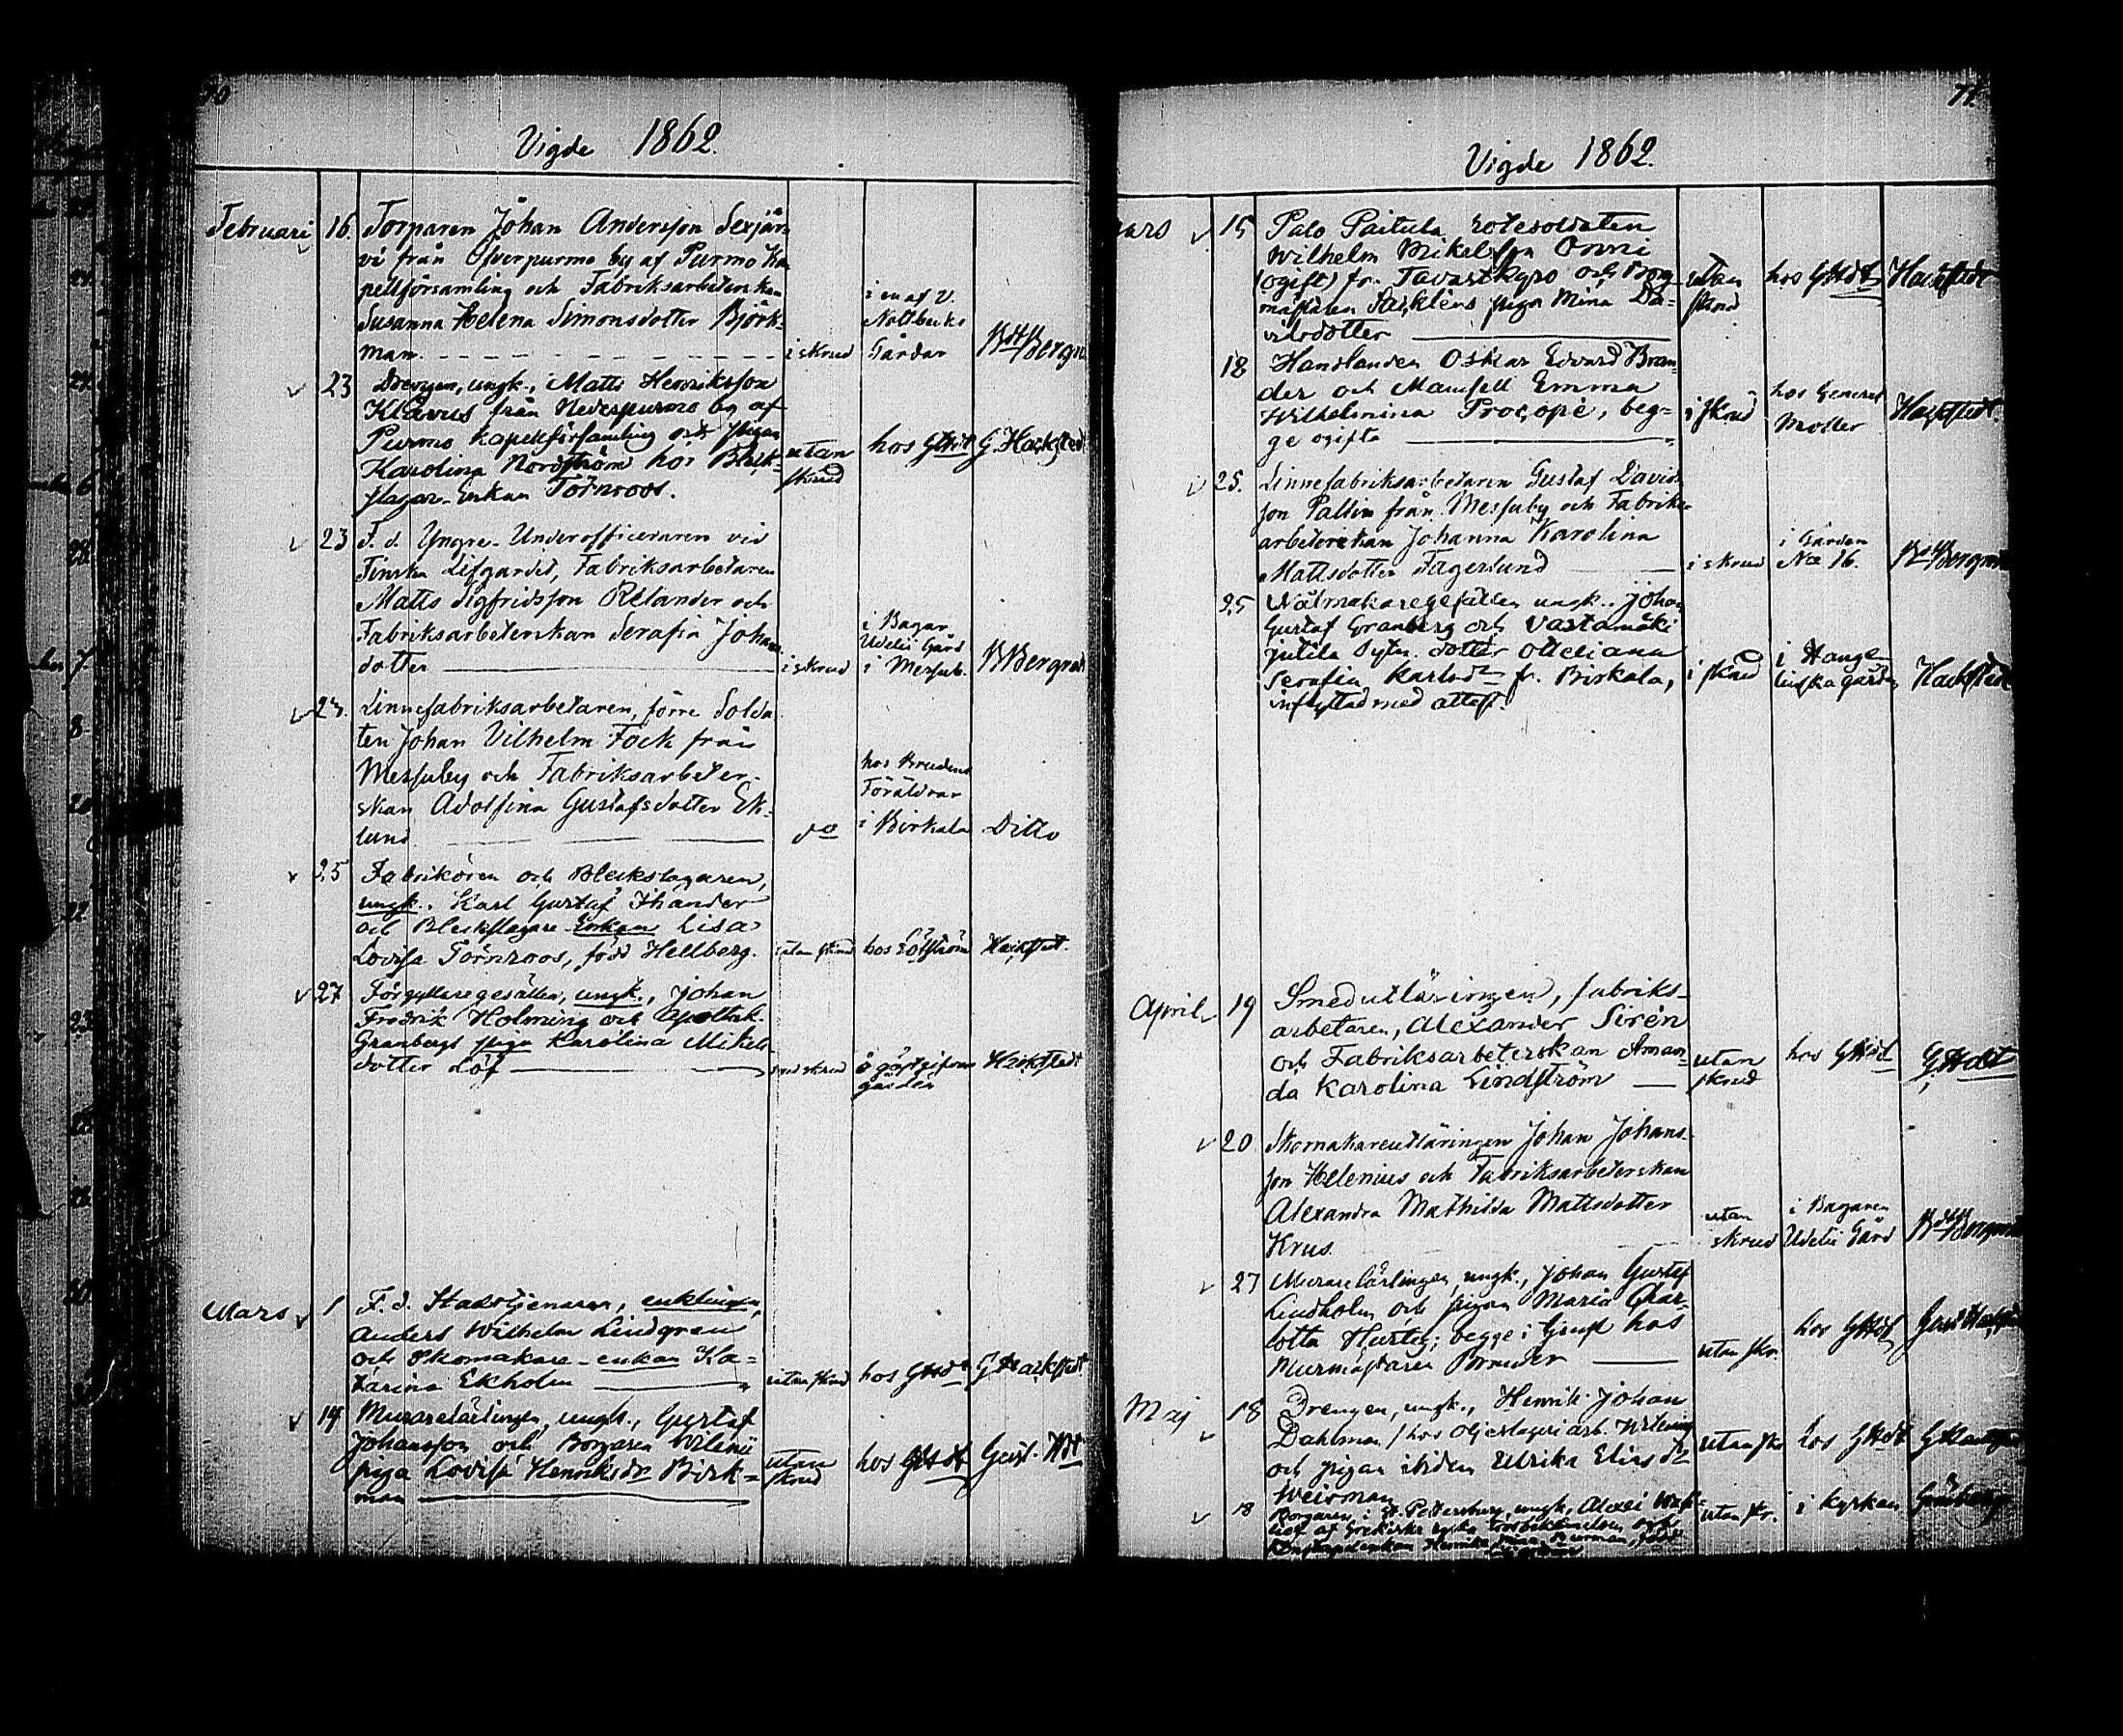 70
Vigde 1862.
Februari 16. Torparen Johan Andersson Sexjär-
vi från Öfverpurmo by af Purmo Ka
pellförsamling och Fabriksarbeterskan
Susanna Helena Simonsdotter Björk-
man.
i skrud
i en af v.
Nottbecks
Gårdar
23 Drengen, ungk., Matts Henriksson
Klavus från Nederpurmo by af
Purmo kapellförsamling och pigan
Karolina Nordström hos Bleck-
slagar-Enkan Törnroos.
utan
skrud
hos GHdt
G. Hackstedt
23 F. d. Yngre-Underofficeraren vid
Finska Lifgardet, Fabriksarbetaren
Matts Sigfridsson Relander och
Fabriksarbeterskan Serafia Johans
dotter
i skrud
i Bagar
Udelii Gård
i Messub.
Linnefabriksarbetaren, förre Solda
ten Johan Vilhelm Fock från
Messuby och Fabriksarbeter-
skan Adolfina Gustafsdotter Ek-
lund
do
hos Brudens
Föräldrar
i Birkala
Ditto
25 Fabrikören och Bleckslagaren,
ungk. Karl Gustaf Ihander
och Bleckslagare Enkan Lisa
Lovisa Törnroos, född Hellberg.
utan skrud
hos Löfström
Hackstedt.
27 Förgyllaregesällen, ungk., Johan
Fredrik Holming och Apothek.
Granbergs piga Karolina Mikels
dotter Löf
skrud
å gästgifvare
gården
Hackstedt
Mars 1 F. d. Stadstjenaren, enklingen,
Anders Wilhelm Lindgren
och Skomakare-enkan Ka-
tarina Ekholm
utan skrud
hos GHdt
G Hackstedt
14 Murarelärlingen, ungk., Gustaf
Johansson och Borgaren Wilenii
piga Lovisa Henriksdr Björk-
man
utan
skrud
hos GHdt
Gust. Hdt
71.
Vigde 1862.
Mars 15 Palo Paitula rotesoldaten
Wilhelm Mikelsson Onni
(ogift) fr. Tavastkyro och Borg
mästaren piga Mina Da-
vidsdotter
utan
skrud
hos GHdt
Hackstedt
18 Handlanden Oskar Edvard Bran-
der och Mamsell Emma
Wilhelmina Procopé, beg-
ge ogifta
i skrud
hos General
Moller
Hackstedt.
25. Linnefabriksarbetaren Gustaf Davids
son Pallin från Messuby och Fabriks-
arbeterskan Johanna Karolina
Mattsdotter Fagerlund
i skrud
i Gården
No 16.
25 Nålmakaregesällen ungk. Johan
Gustaf Granberg och Vastamäki
jutila dotter Otteliana
Serafia Karlsdr fr. Birkala,
inflyttad med attest.
i skrud
i Hauge-
gården
Hackstedt
April 19 Smedutläringen, fabriks-
arbetaren, Alexander Sirén
och Fabriksarbeterskan Aman-
da Karolina Lindström
utan
skrud
hos GHdt
G. Hdt
20 Skomakareutläringen Johan Johans-
son Helenius och Fabriksarbeterskan
Alexandra Mathilda Mattsdotter
Krus
utan
skrud
i Bagaren
Udelii Gård
27 Murarelärlingen, ungk., Johan Gustaf
Lindholm och pigan Maria Char-
lotta Hurtig; begge i tjenst hos
Murmästaren Brander
utan skr.
hos GHdt
Maj 18 Drengen, ungk., Henrik Johan
Dahlman / hos Oljeslageriarb.
och pigan ibidem Ulrika Eliasdr
Weisman
utan skr.
hos GHdt
18 Borgaren i St. Petersburg, ungk., Alexei
af Grekiska trosbekännelsen och
utan skr.
i kyrkan